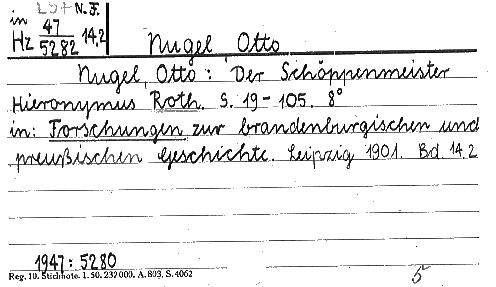 in LS7 N.F.
Hz 47/5282 14,2
Nugel Otto
Nugel, Otto: Der Schöppenmeister
Hieronymus Roth. S. 19-105. 8°
in: Forschungen zur brandenburgischen und
preußischen Geschichte. Leipzig 1901. Bd. 14.2
1947: 5280
Reg. 10. Stichnote. 1. 50. 232000. A. 803. S. 4062
5